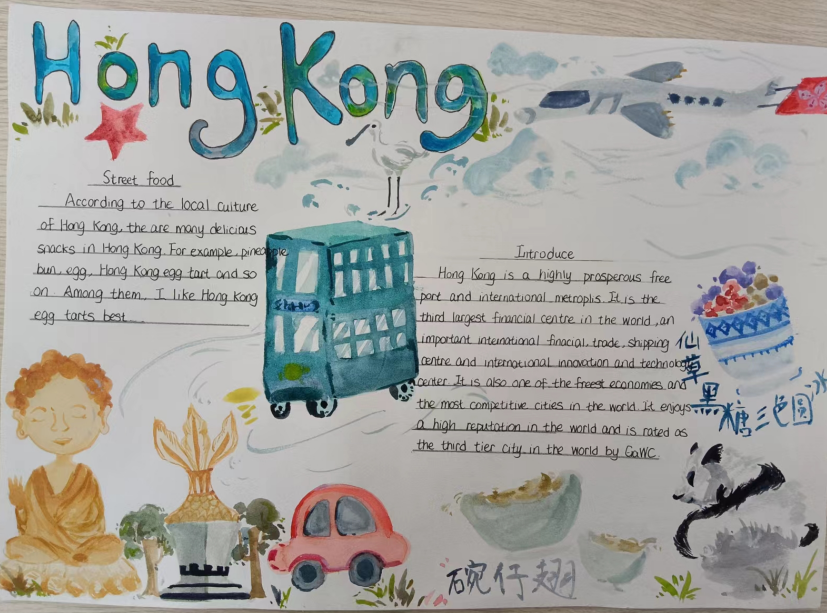 Hong Kong
Street food
According to the local culture
of Hong Kong, the are many delicious
snacks in Hong Kong. For example, pineapple
bun, egg, Hong Kong egg tart and so
on Among them, I like Hong Kong
egg tarts best
Introduce
Hong Kong is a highly prosperous free
port and international metroplis. It is the
third largest financial centre in the world, an
important international finacial, trade, shipping
centre and international innovation and technology
center. It is also one of the freest economies and
the most competitive cities in the world. It enjoys
a high reputation in the world and is rated as
the third tier city in the world by GaWC
仙草黑糖三色圆
碗仔翅